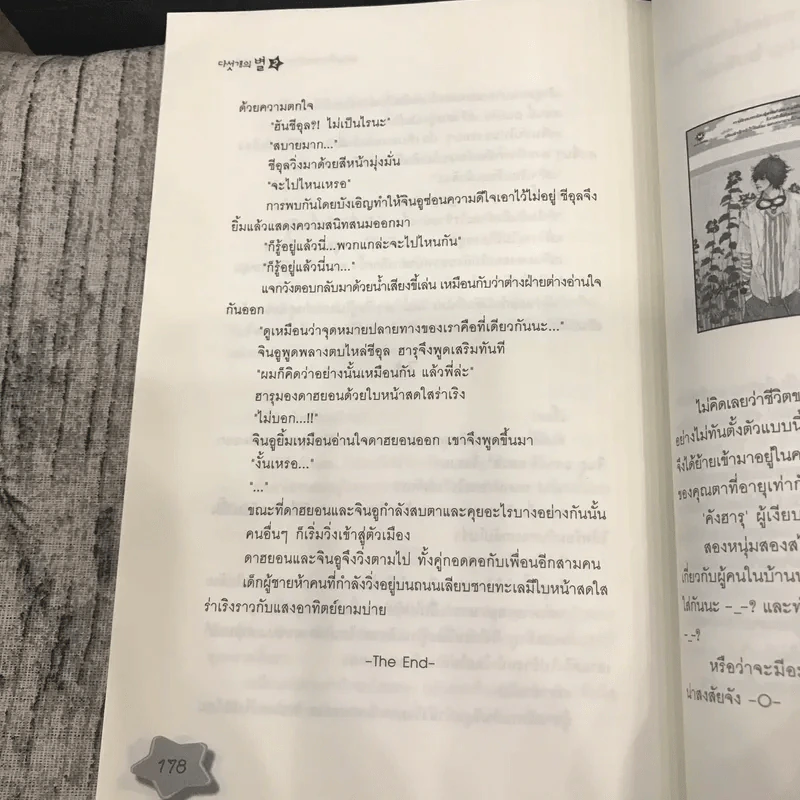 다섯개의 별 2
ด้วยความตกใจ
"ฮันซีอุล?! ไม่เป็นไรนะ"
"สบายมาก..."
ซีอุลวิ่งมาด้วยสีหน้ามุ่งมั่น
"จะไปไหนเหรอ"
การพบกันโดยบังเอิญทำให้จินอูซ่อนความดีใจเอาไว้ไม่อยู่ ซีอุลจึง
ยิ้มแล้วแสดงความสนิทสนมออกมา
"ก็รู้อยู่แล้วนี่...พวกแกล่ะจะไปไหนกัน"
"ก็รู้อยู่แล้วนี่นา..."
แจกวังตอบกลับมาด้วยน้ำเสียงขี้เล่น เหมือนกับว่าต่างฝ่ายต่างอ่านใจ
กันออก
"ดูเหมือนว่าจุดหมายปลายทางของเราคือที่เดียวกันนะ..."
จินอูพูดพลางตบไหล่ซีอุล ฮารุจึงพูดเสริมทันที
"ผมก็คิดว่าอย่างนั้นเหมือนกัน แล้วพี่ล่ะ"
ฮารุมองดาฮยอนด้วยใบหน้าสดใสร่าเริง
"ไม่บอก...!!"
จินอูยิ้มเหมือนอ่านใจดาฮยอนออก เขาจึงพูดขึ้นมา
"งั้นเหรอ..."
"..."
ขณะที่ดาฮยอนและจินอูกำลังสบตาและคุยอะไรบางอย่างกันนั้น
คนอื่นๆ ก็เริ่มวิ่งเข้าสู่ตัวเมือง
ดาฮยอนและจินอูจึงวิ่งตามไป ทั้งคู่กอดคอกับเพื่อนอีกสามคน
เด็กผู้ชายห้าคนที่กำลังวิ่งอยู่บนถนนเลียบชายทะเลมีใบหน้าสดใส
ร่าเริงราวกับแสงอาทิตย์ยามบ่าย
-The End-
178
ไม่คิดเลยว่าชีวิตข
อย่างไม่ทันตั้งตัวแบบนี้
จึงได้ย้ายเข้ามาอยู่ในค
ของคุณตาที่อายุเท่ากั
'คังฮารุ' ผู้เงียบ
สองหนุ่มสองส
เกี่ยวกับผู้คนในบ้านห
ใส่กันนะ -_-? และท
-_-?
หรือว่าจะมีอะ
น่าสงสัยจัง -O-